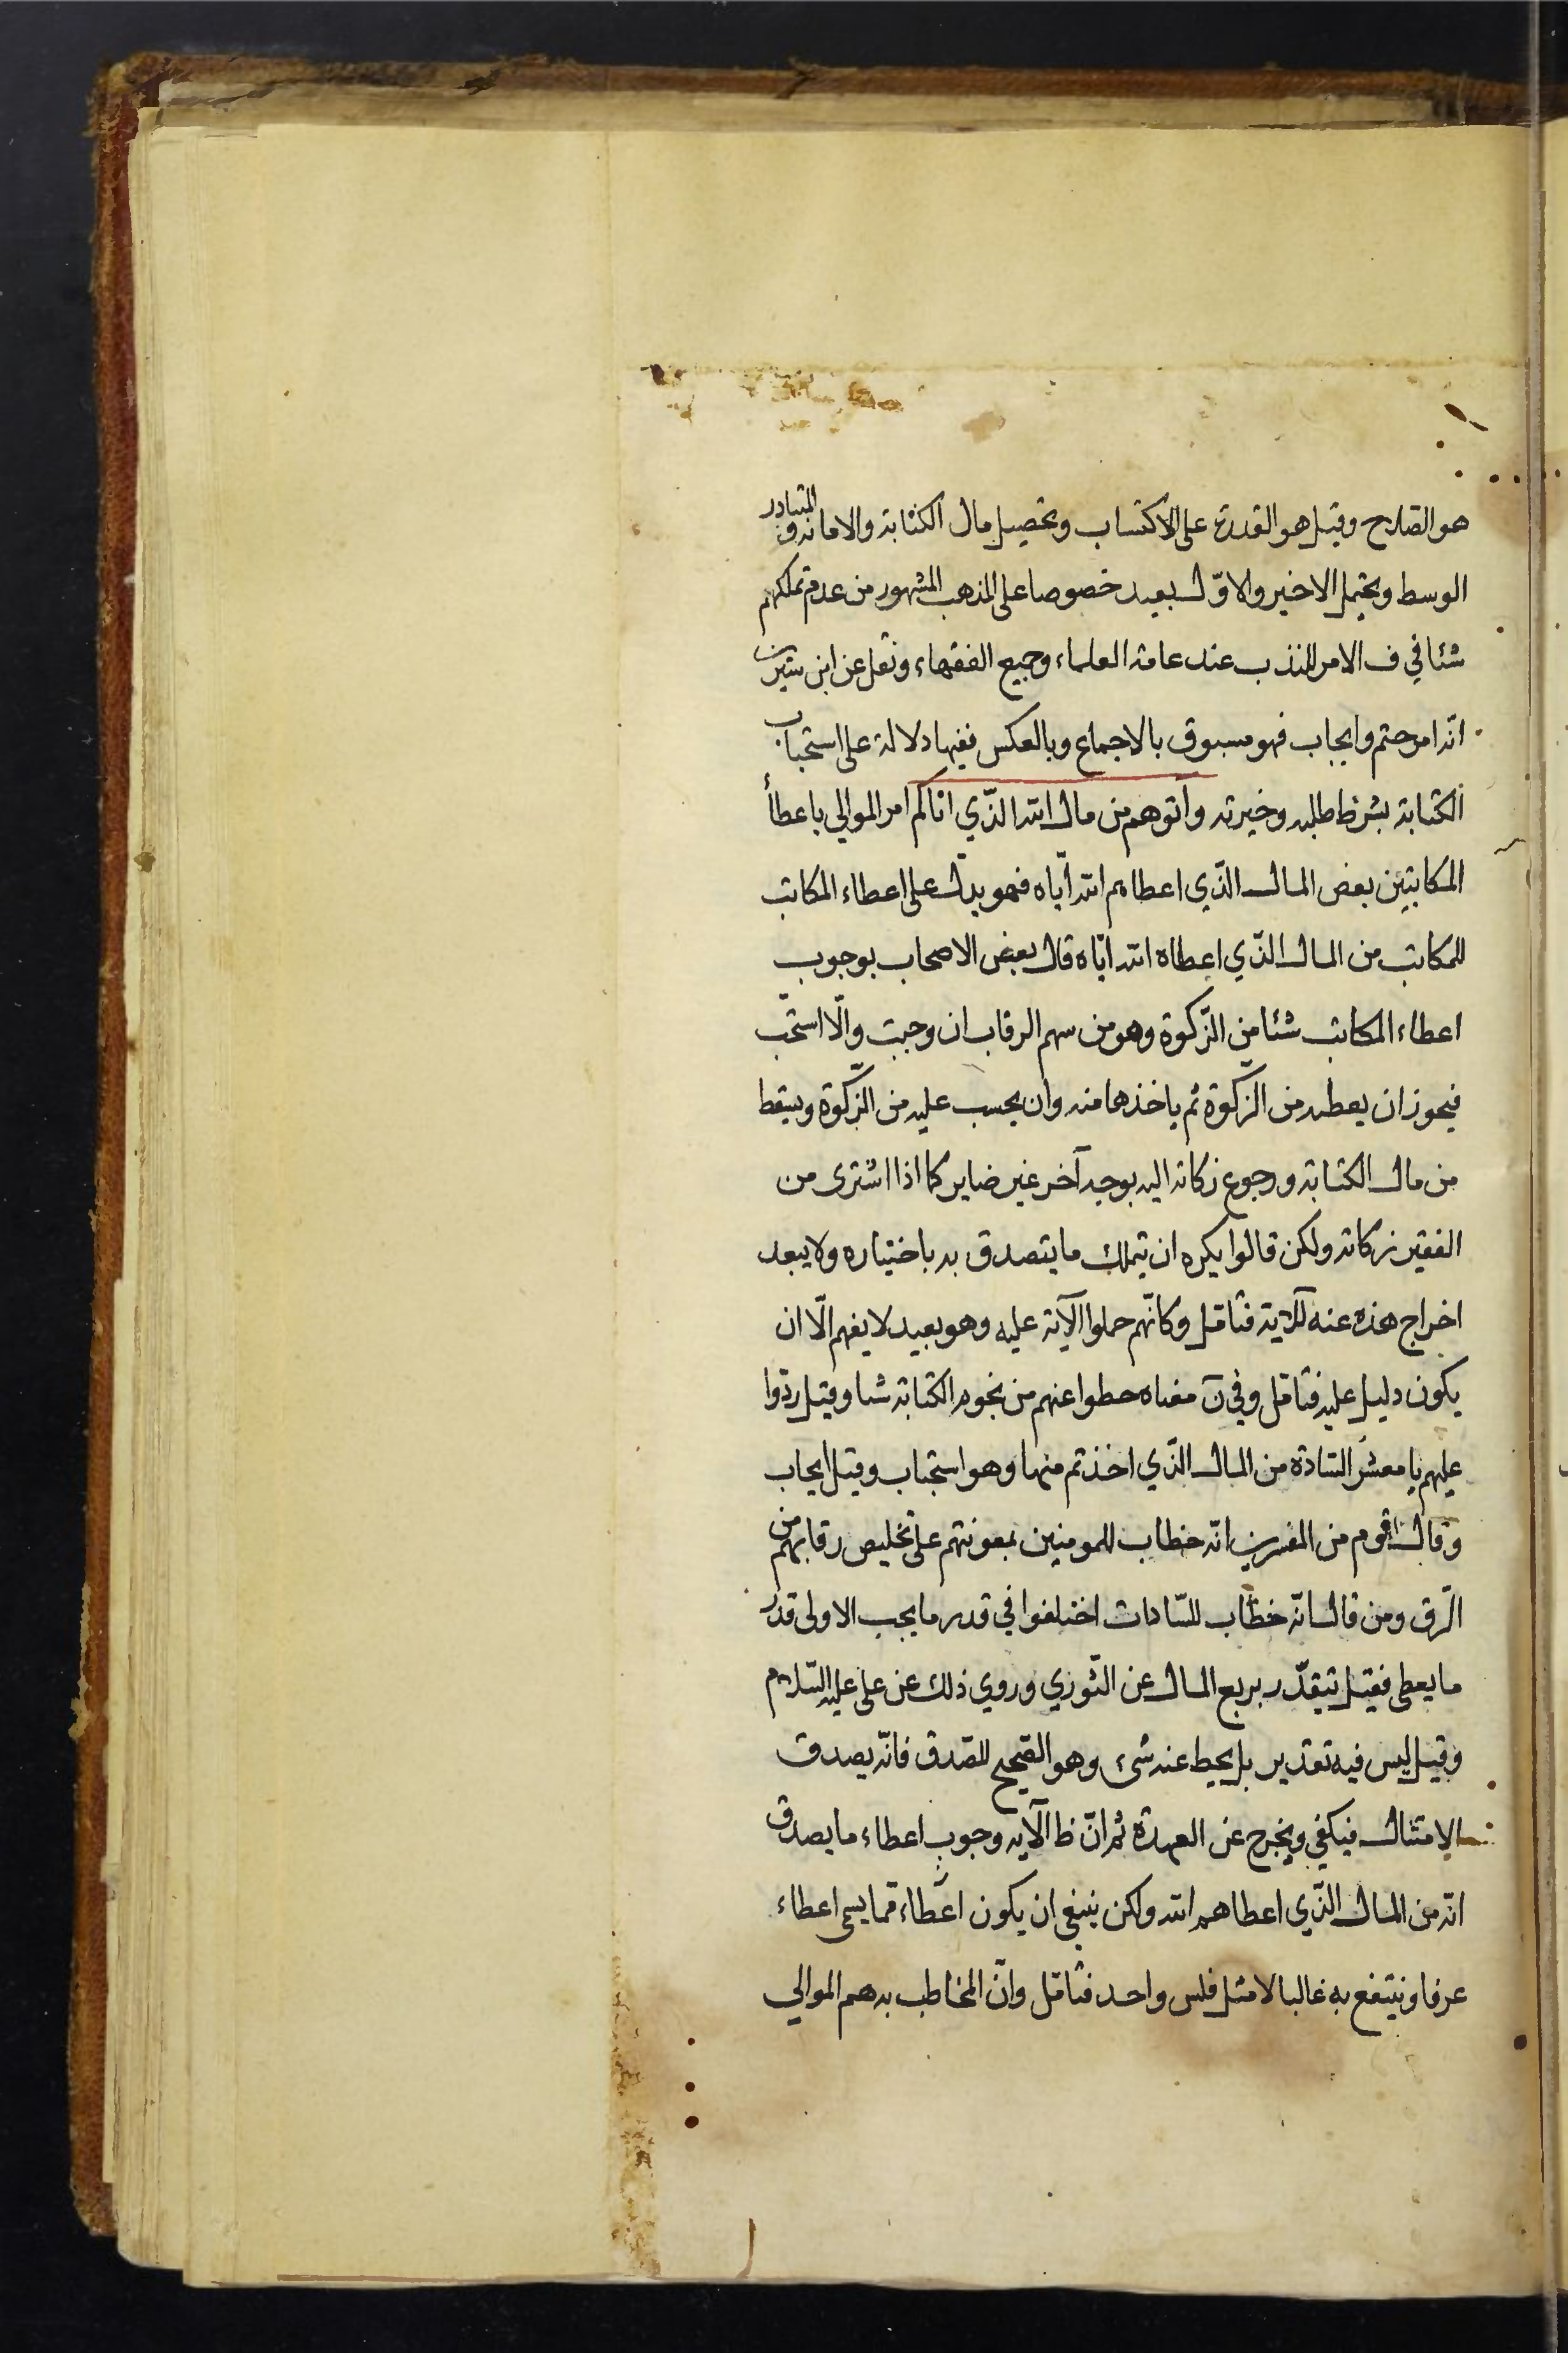 هو الصلاح وقيل هو القدرة على الاكتساب وتحصيل مال الكتابة والامانة والمتبادر
الوسط ويحتمل الاخير والاوّل بعيد خصوصا على المذهب المشهور من عدم تملكهم
شئا في ف الامر للندب عند عامة العلماء وجميع الفقهاء ونقل عن ابن سيرين
انه امر حتم وايجاب فهو مسبوق بالاجماع وبالعكس ففيها دلالة على استحباب
الكتابة بشرط طلبه وخيرته وآتوهم من مال الله الذّي اتاكم امر الموالي باعطأ
المكاتبين بعض المال الذّي اعطاهم الله ايّاه فهو يدلّ على اعطاء المكاتب
للمكاتب من المال الذّي اعطاه الله ايّاه قال بعض الاصحاب بوجوب
اعطاء المكاتب شئا من الزّكوة وهو من سهم الرقاب ان وجبت والّا استحّب
فيجوز ان يعطيه من الزّكوة ثم ياخذها منه وان يحسب عليه من الزّكوة ويسقط
من مال الكتابة ورجوع زكاته اليه بوجه آخر غير ضاير كما اذا اشترى من
الفقير زكاته ولكن قالوا يكره ان يتملك ما يتصدق به باختياره ولا يبعد
اخراج هذه عنه للآية فتامّل وكانّهم حملوا الآية عليه وهو بعيد لا يفهم الّا ان
يكون دليل عليه فتامّل وفي ن معناه حطوا عنهم من نجوم الكتابة شئا وقيل ردّوا
عليهم يا معشر السّادة من المال الذّي اخذتم منها وهو استحباب وقيل ايجاب
وقال قوم من المفسرين انّه خطاب للمومنين بمعونتهم على تخليص رقابهم من
الرّق ومن قال انّه خطاب للسّادات اختلفوا في قدر ما يجب الاولى قدر
ما يعطى فقيل يتقدّر بربع المال عن الثّوري وروي ذلك عن علي عليه السّلام
وقيل ليس فيه تقدير بل يحيط عنه شئ وهو الصّحيح للصّدق فانّه يصدق
الامتثال فيكفي ويخرج عن العهدة ثم انّ ظ الآية وجوب اعطاء ما يصدق
انّه من المال الذّي اعطاهم الله ولكن ينبغي ان يكون اعطاء ممّا يسمى اعطاء
عرفا وينتفع به غالبا لا مثل فلس واحد فتامّل وانّ المخاطب به هم الموالي